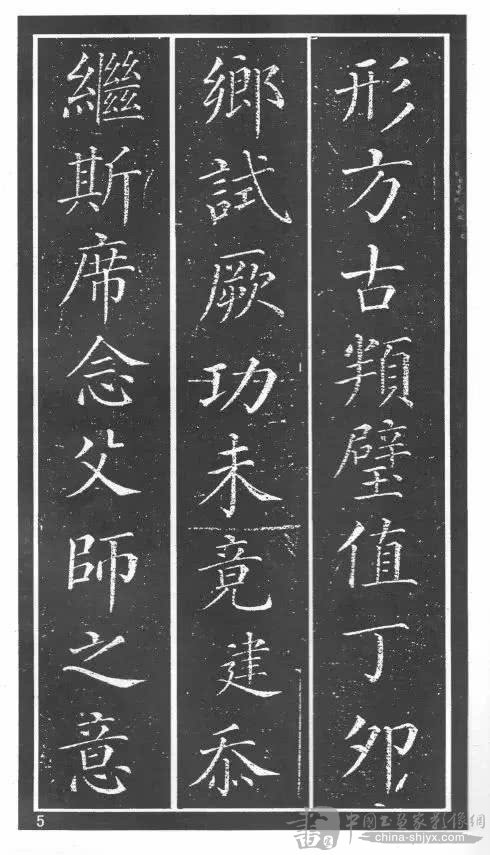 形方古頖璧值丁卯
鄉試厥功未竟建忝
繼斯席念父師之意
5
中国书画家影像網
china-shjyx.com